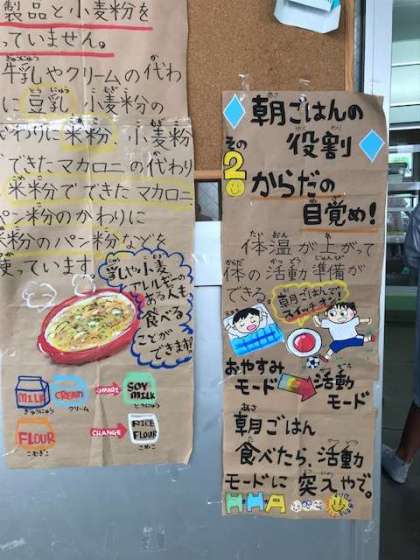 製品と小麦粉を
っていません。
牛乳やクリームの代わ
に豆乳、小麦粉の
わりに米粉、小麦粉
できたマカロニの代わり
米粉でできたマカロニ、
パン粉のかわりに
米粉のパン粉などを
使っています。
乳や小麦
アレルギーの
ある人も
食べる
ことが
できます!
MILK
ぎゅうにゅう
CREAM
クリーム
CHANGE
SOY
MILK
とうにゅう
FLOUR
こむぎこ
CHANGE
RICE
FLOUR
こめこ
朝ごはんの
役割
その
2
からだの
目覚め!
体温が上がって
体の活動準備が
できる
朝ごはんで
スイッチオン
おやすみ
モード
活動
モード
朝ごはん
食べたら、活動
モードに突入やで。